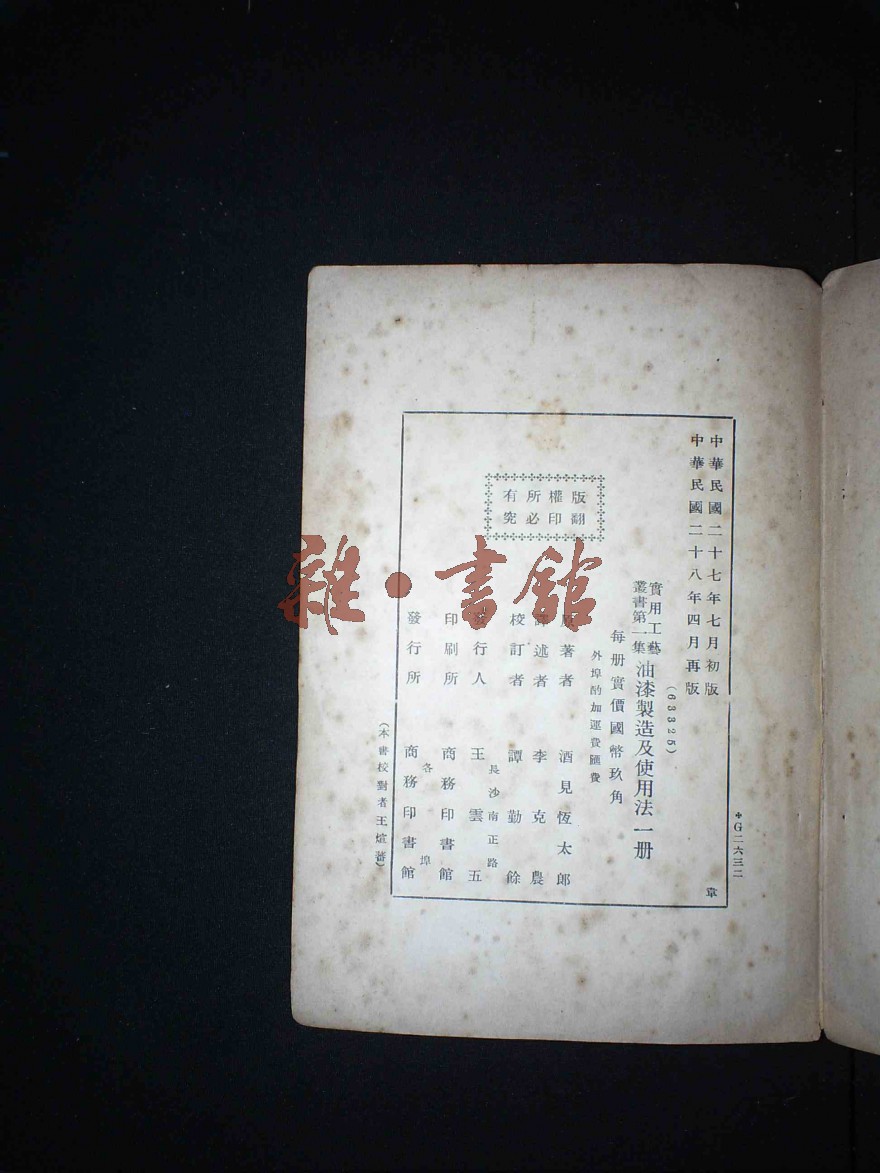 中華民國二十七年七月初版
中華民國二十八年四月再版
(63325)
實用工藝
叢書第一集
油漆製造及使用法一册
每册實價國幣玖角
外埠酌加運費匯費
版權所有
翻印必究
著者 酒見恆太郎
述者 李克農
校訂者 譚勤餘
發行人 王雲五
長沙南正路
印刷所 商務印書館
各埠
發行所 商務印書館
(本書校對者王煊蕃)
*G二六三二
雜·書館